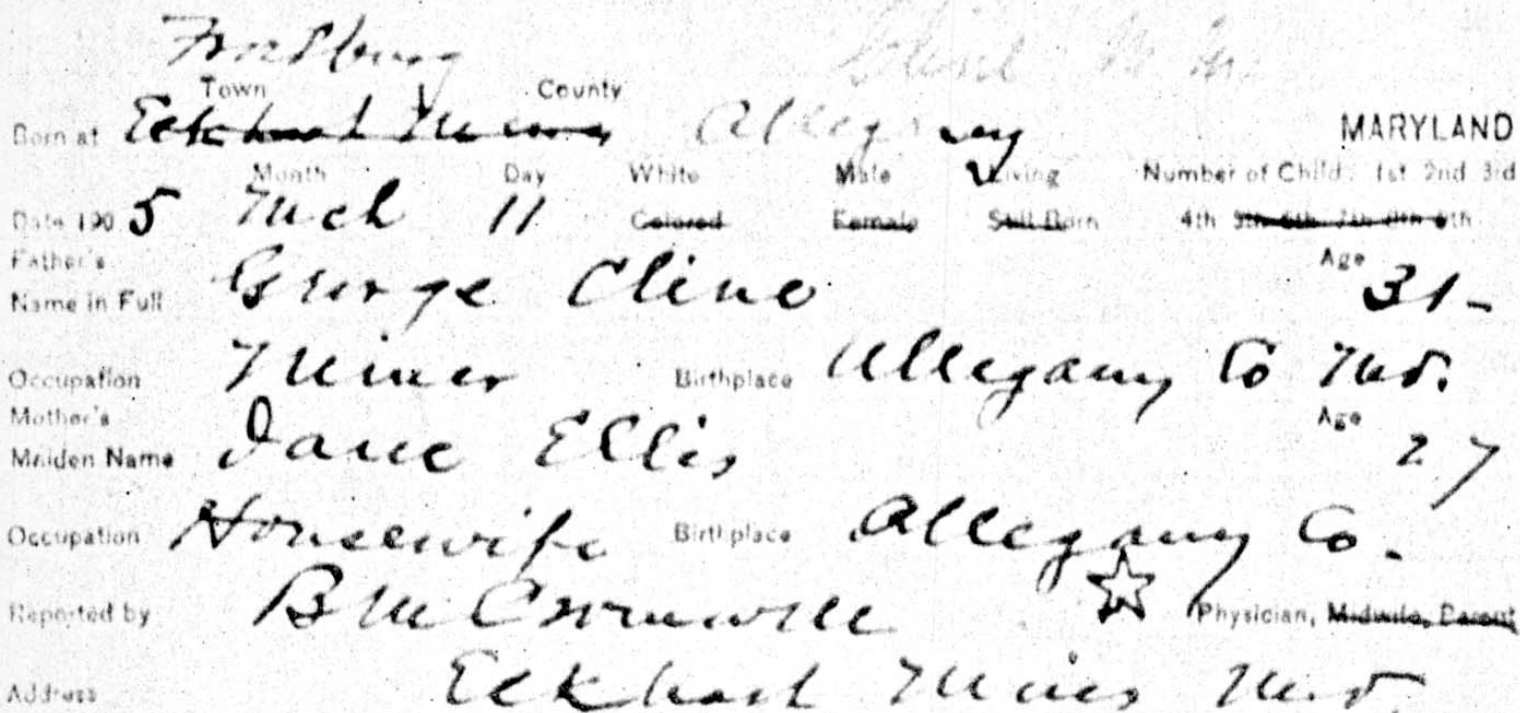 Frostburg
Town County
Born at Eckhart Mines Allegany MARYLAND
Month Day White Male Living Number of Child: 1st 2nd 3rd
Date 1905 Mch 11 Colored Female Still Born 4th 5th 6th 7th 8th 9th
Father's Age
Name in Full George Cline 31-
Occupation Miner Birthplace Allegany Co Md.
Mother's Age
Maiden Name Jane Ellis 27
Occupation Housewife Birthplace Allegany Co.
Reported by B M Cromwell Physician, Midwife, Parent
Address Eckhart Mines Md.